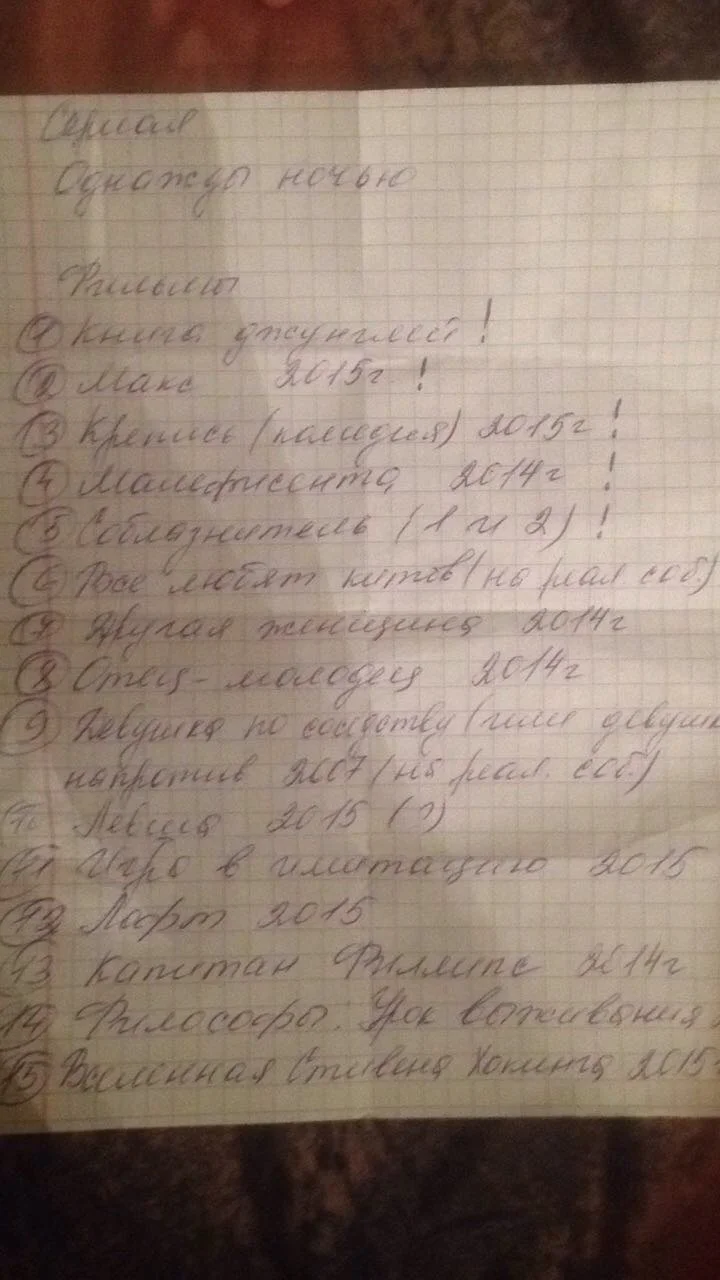 Сериал
Однажды ночью
Фильмы
1 Книга джунглей !
2 Макс 2015г !
3 Крепись (комедия) 2015г !
4 Малефисента 2014г !
5 Соблазнитель (1 и 2) !
6 Все любят китов (на реал соб.)
7 Другая женщина 2014г
8 Отец-молодец 2014г
9 Девушка по соседству (или девушк
напротив 2007 (на реал. соб.)
10 Левша 2015 (?)
11 Игра в имитацию 2015
12 Лофт 2015
13 Капитан Филлипс 2014г
14 Философы. Урок выживания
15 Вселенная Стивена Хокинга 2015г